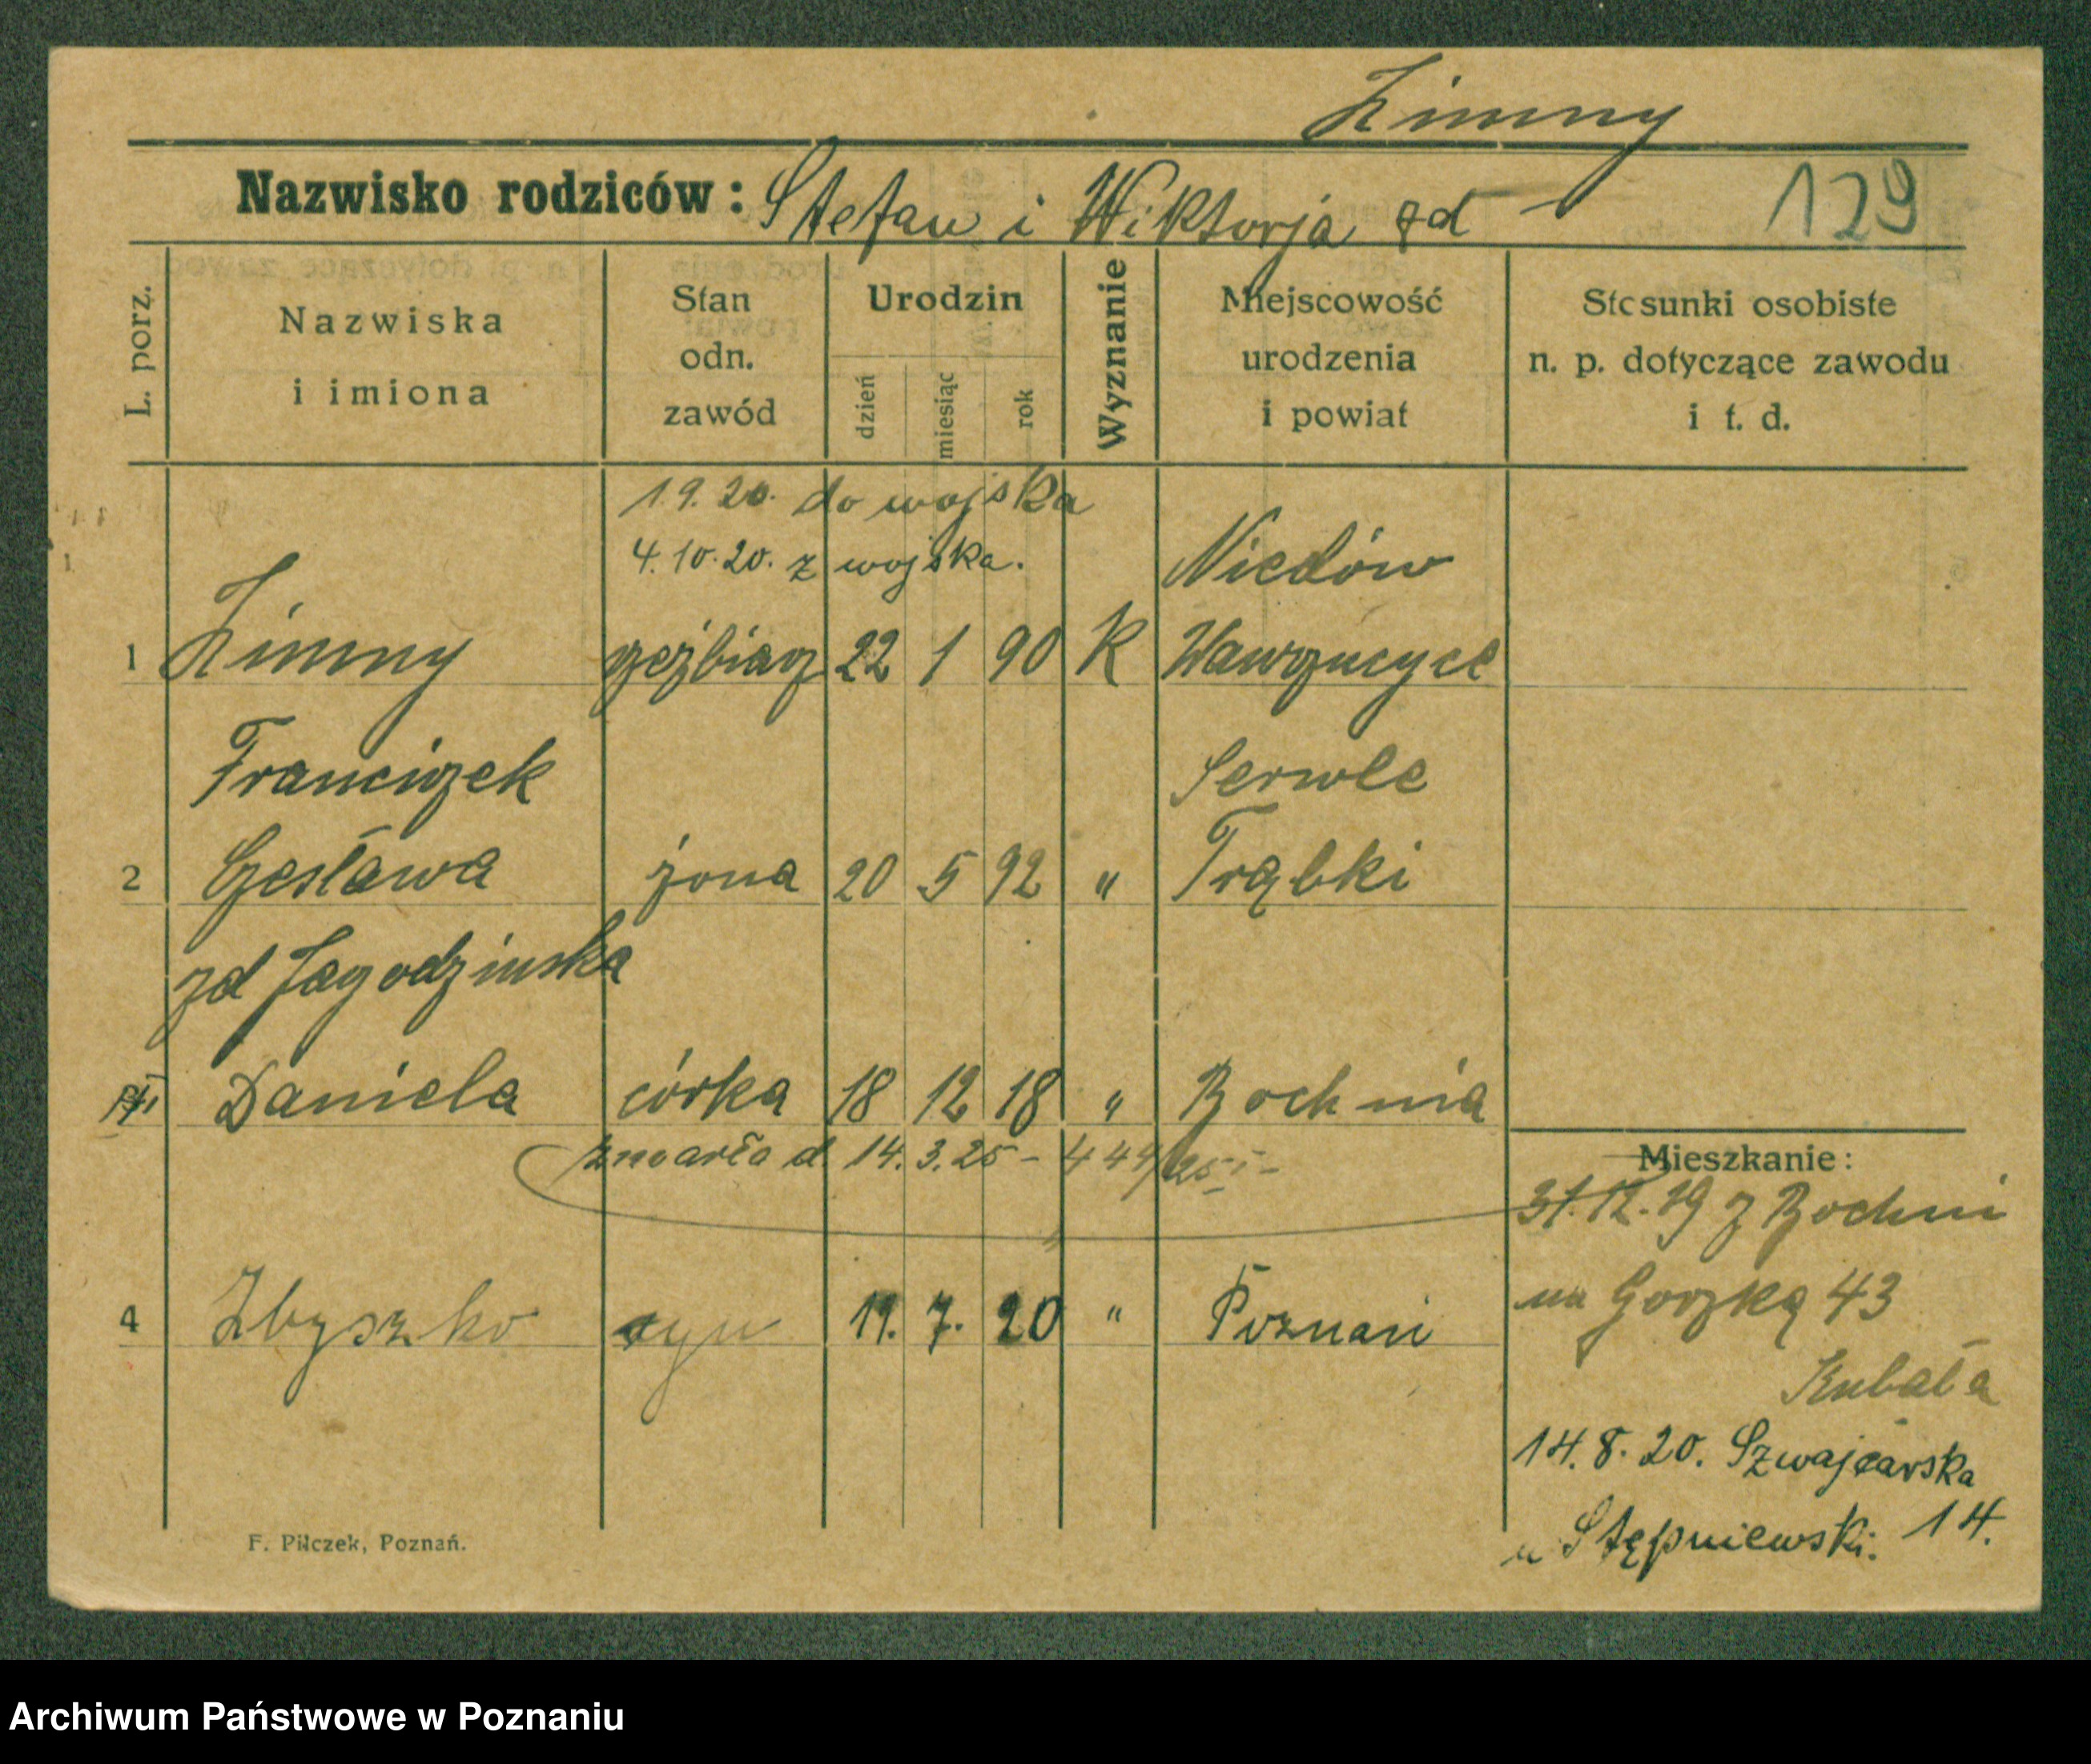 Zimny
Nazwisko rodziców: Stefan i Wiktorja zd — 129
L. porz. Nazwiska i imiona Stan odn. zawód Urodzin dzień miesiąc rok Wyznanie Miejscowość urodzenia i powiat Stosunki osobiste n. p. dotyczące zawodu i t. d.
1.9.20. do wojska
4.10.20. z wojska. Niedów
1 Zimny rzeźbiarz 22 1 90 K
Franciszek
2 Czesława żona 20 5 92 " Trąbki
zd Jagodzinska
Daniela córka 18 12 18 " Bochnia
zmarła d. 14.3.25 – 444/25
Mieszkanie:
31.12.19 z Bochni
4 Zbyszko syn 19. 7. 20 " Poznań
na Gorzką 43
Kubała
14.8.20. Szwajcarska
u Stępniewski. 14.
F. Pilczek, Poznań.
Archiwum Państwowe w Poznaniu